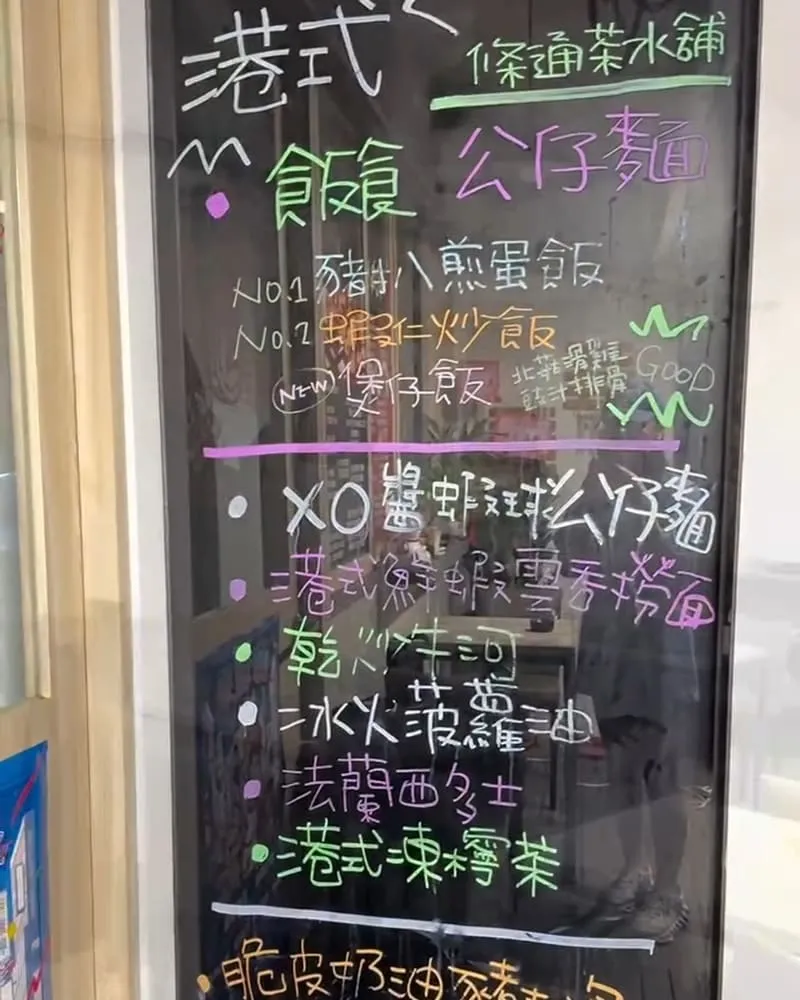 港式
條通茶水舖
飯食 公仔麵
NO.1 豬扒煎蛋飯
NO.2 蝦仁炒飯
NEW 煲仔飯
北菇滑雞
豉汁排骨
GOOD
XO醬蝦球公仔麵
港式鮮蝦雲吞撈面
乾炒牛河
冰火菠蘿油
法蘭西多士
港式凍檸茶
脆皮奶油豬